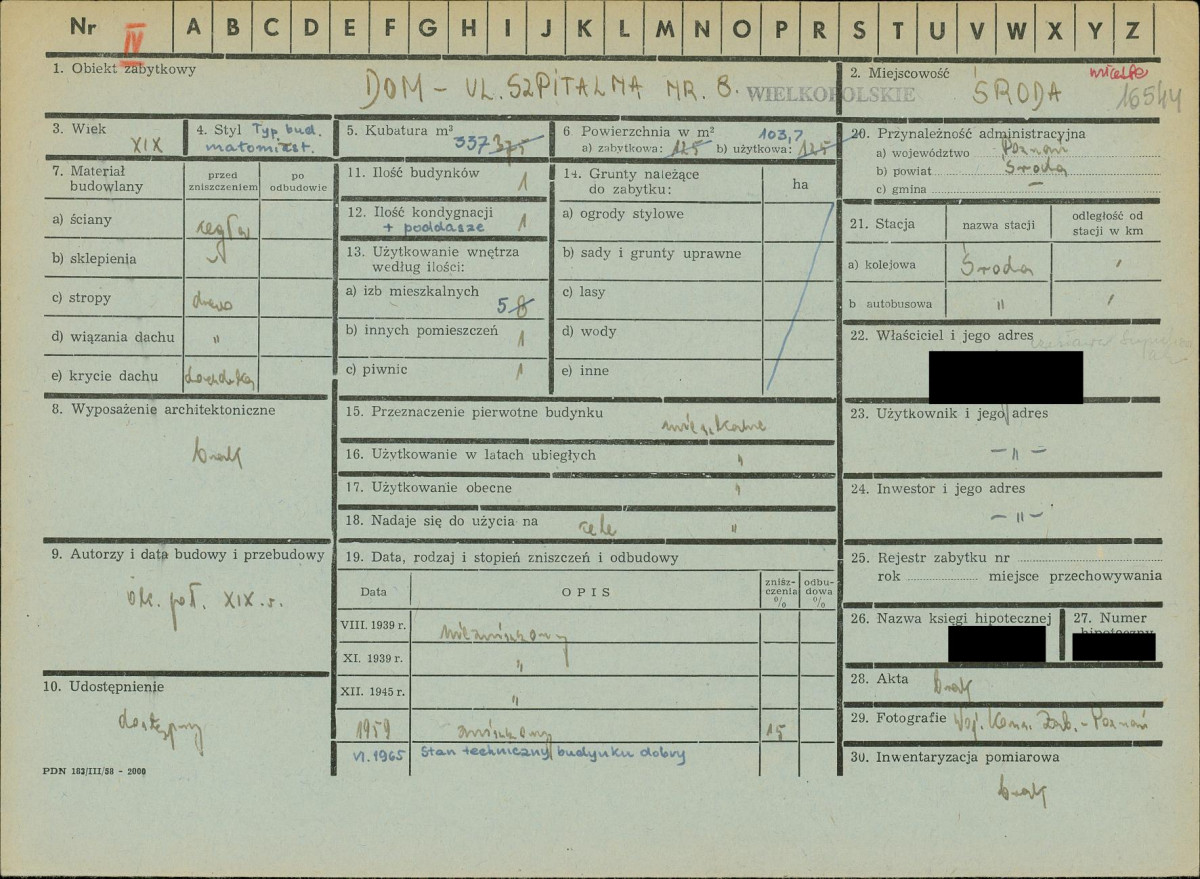 Nr IV A B C D E F G H I J K L M N O P R S T U V W X Y Z
1. Obiekt zabytkowy DOM - UL. SZPITALNA NR. 8. WIELKOPOLSKIE
2. Miejscowość ŚRODA 16544
3. Wiek XIX
4. Styl Typ. bud.
małomiast.
5. Kubatura m³ 337 375
6 Powierzchnia w m² 103,7
a) zabytkowa: 125 b) użytkowa: 125
7. Materiał
budowlany
przed
zniszczeniem
po
odbudowie
a) ściany cegła
b) sklepienia
c) stropy drewo
d) wiązania dachu "
e) krycie dachu dachówka
8. Wyposażenie architektoniczne
brak
9. Autorzy i data budowy i przebudowy
ok. poł. XIX w.
10. Udostępnienie
dostępny
PDN 183/III/58 - 2000
11. Ilość budynków 1
12. Ilość kondygnacji 1
+ poddasze
13. Użytkowanie wnętrza
według ilości:
a) izb mieszkalnych 5 8
b) innych pomieszczeń 1
c) piwnic 1
14. Grunty należące
do zabytku:
ha
a) ogrody stylowe
b) sady i grunty uprawne
c) lasy
d) wody
e) inne
15. Przeznaczenie pierwotne budynku
mieszkalne
16. Użytkowanie w latach ubiegłych "
17. Użytkowanie obecne "
18. Nadaje się do użycia na cele "
19. Data, rodzaj i stopień zniszczeń i odbudowy
Data
OPIS
znisz-
czenia
%
odbu-
dowa
%
VIII. 1939 r. niezniszczony
XI. 1939 r. "
XII. 1945 r. "
1959 zniszczony 15
VI. 1965 Stan techniczny budynku dobry
20. Przynależność administracyjna
a) województwo Poznań
b) powiat Środa
c) gmina —
21. Stacja
nazwa stacji
odległość od
stacji w km
a) kolejowa Środa
b autobusowa "
22. Właściciel i jego adres
23. Użytkownik i jego adres
— " —
24. Inwestor i jego adres
— " —
25. Rejestr zabytku nr
rok miejsce przechowywania
26. Nazwa księgi hipotecznej
27. Numer
hipoteczny
28. Akta brak
29. Fotografie Woj. Kons. Zab. - Poznań
30. Inwentaryzacja pomiarowa
brak